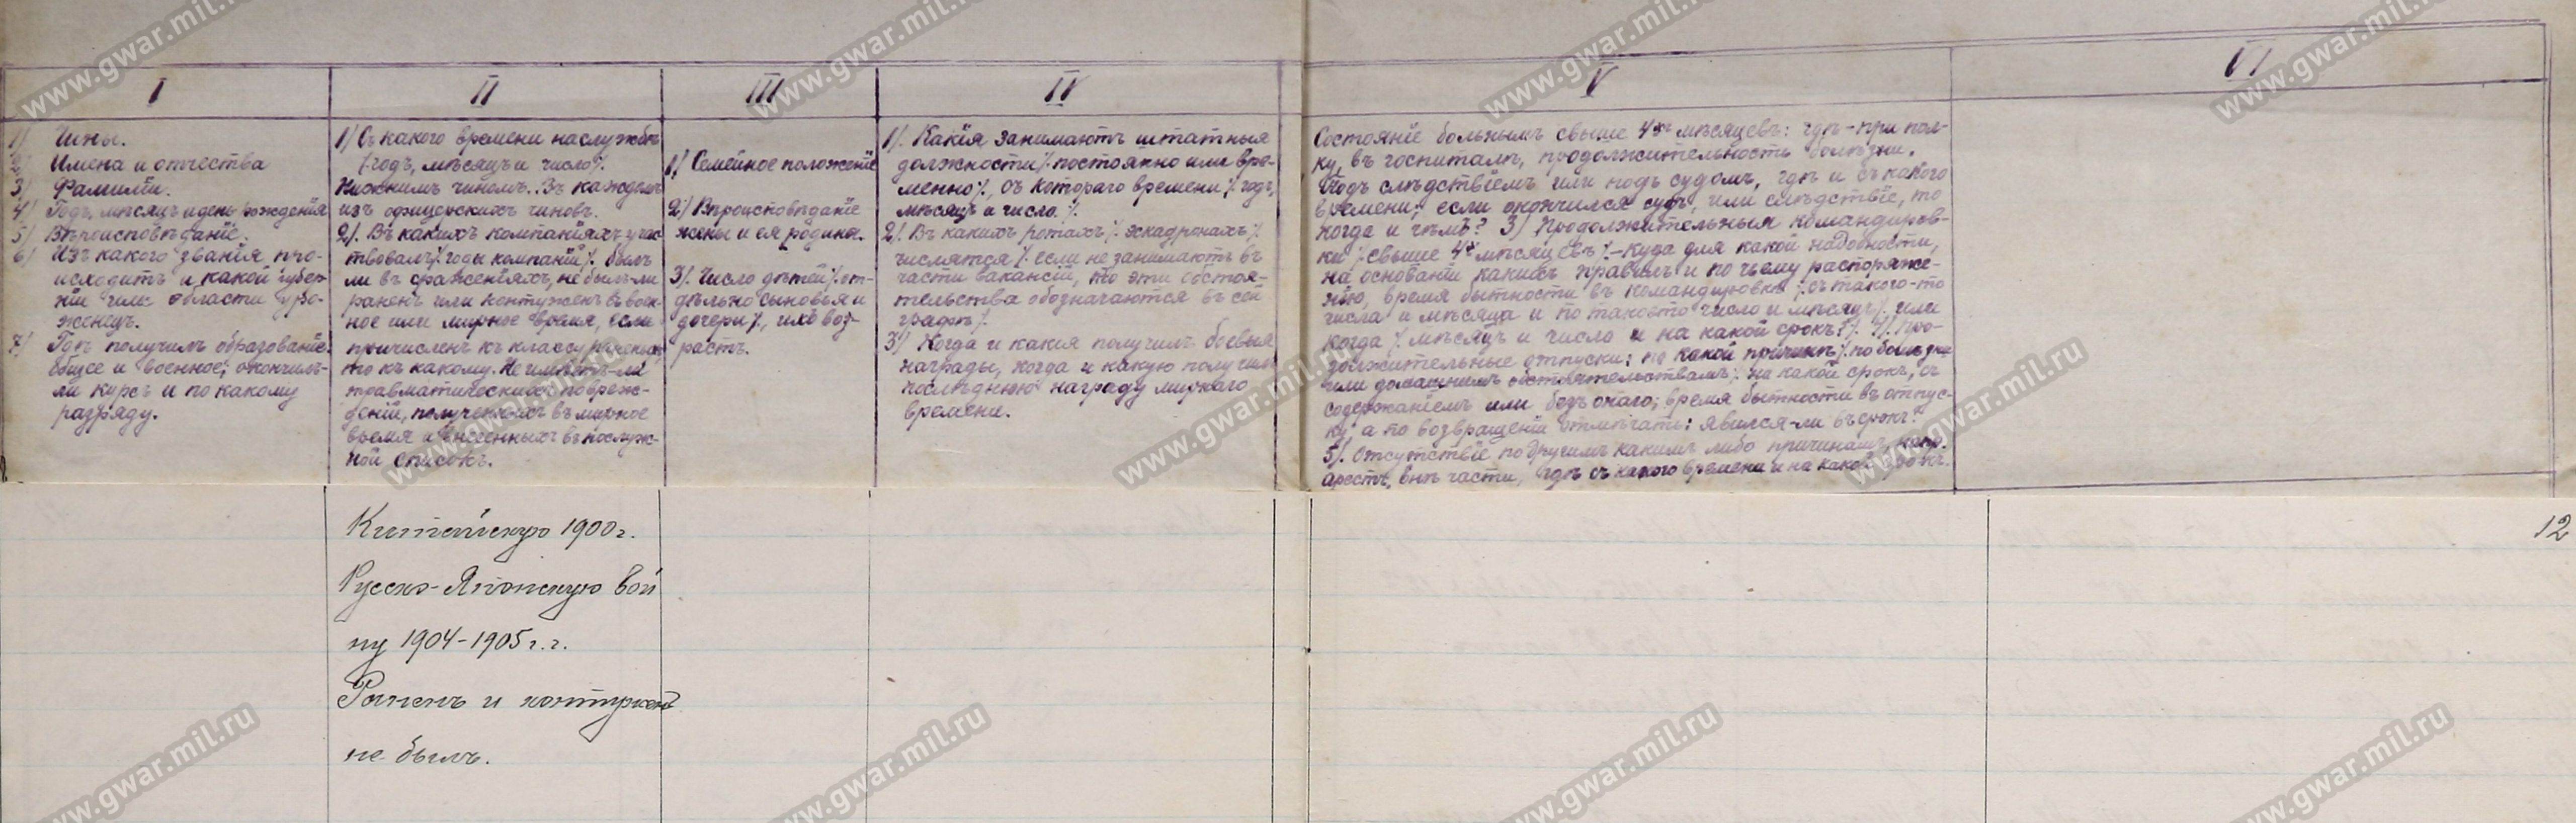 I
1) Чины.
2) Имена и отчества
3) Фамилiи.
4) Годъ, мѣсяцъ и день рожденiя
5) Вѣроисповѣданiе.
6) Изъ какого званiя про-
исходитъ и какой губер-
нiи или области уро-
женецъ.
7) Гдѣ получилъ образованiе:
общее и военное; окончилъ-
ли курсъ и по какому
разряду.
II
1) Съ какого времени на службѣ
/годъ, мѣсяцъ и число/.
Нижнимъ чиномъ. Въ каждомъ
изъ офицерскихъ чиновъ.
2/. Въ какихъ компанiяхъ учас-
твовалъ /годы компанiй/. былъ
ли въ сраженiяхъ, не былъ-ли
раненъ или контуженъ въ воен-
ное или мирное время, если
причисленъ къ классу раненыхъ
то къ какому. Не имѣетъ-ли
травматическихъ повреж-
денiй, полученныхъ въ мирное
время и внесенныхъ въ послуж-
ной списокъ.
III
1/ Семейное положенiе
2/ Вѣроисповѣданiе
жены и ея родина.
3/. Число дѣтей /от-
дѣльно сыновья и
дочери/., ихъ воз-
растъ.
IV
1/. Какiя занимаютъ штатныя
должности /.постоянно или вре-
менно/., съ котораго времени /.годъ,
мѣсяцъ и число./.
2/. Въ какихъ ротахъ /. эскадронахъ/.
числятся /. если не занимаютъ въ
части вакансiй, то эти обстоя-
тельства обозначаются въ сей
графѣ/.
3/ Когда и какiя получилъ боевыя
награды, когда и какую получилъ
послѣднюю награду мирнаго
времени.
V
Состоянiе больнымъ свыше 4хъ мѣсяцевъ: гдѣ - при пол-
ку, въ госпиталѣ, продолжительность болѣзни.
Подъ слѣдствiемъ или подъ судомъ, гдѣ и съ какого
времени; если окончился судъ, или слѣдствiе, то
когда и чѣмъ? 3/ Продолжительныя командиров-
ки /.свыше 4хъ мѣсяцевъ/. - куда для какой надобности,
на основанiи какихъ правилъ и по чьему распоряже-
нiю, время бытности въ командировкѣ /.съ такого-то
числа и мѣсяца и по такое то число и мѣсяцъ/. или
когда /. мѣсяцъ и число и на какой срокъ?/. 4/. Про-
должительные отпуски: по какой причинѣ /.по болѣзни
или домашнимъ обстоятельствамъ/. на какой срокъ, съ
содержанiемъ или безъ онаго; время бытности въ отпус-
ку а по возвращенiи отмѣчать: явился-ли въ срокъ?
5/. Отсутствiе по другимъ какимъ либо причинамъ, напр.
арестъ, внѣ части, гдѣ съ какого времени и на какой срокъ.
VI
Китайскую 1900 г.
Русско-Японскую вой
ну 1904-1905 г.г.
Раненъ и контуженъ
не былъ.
12